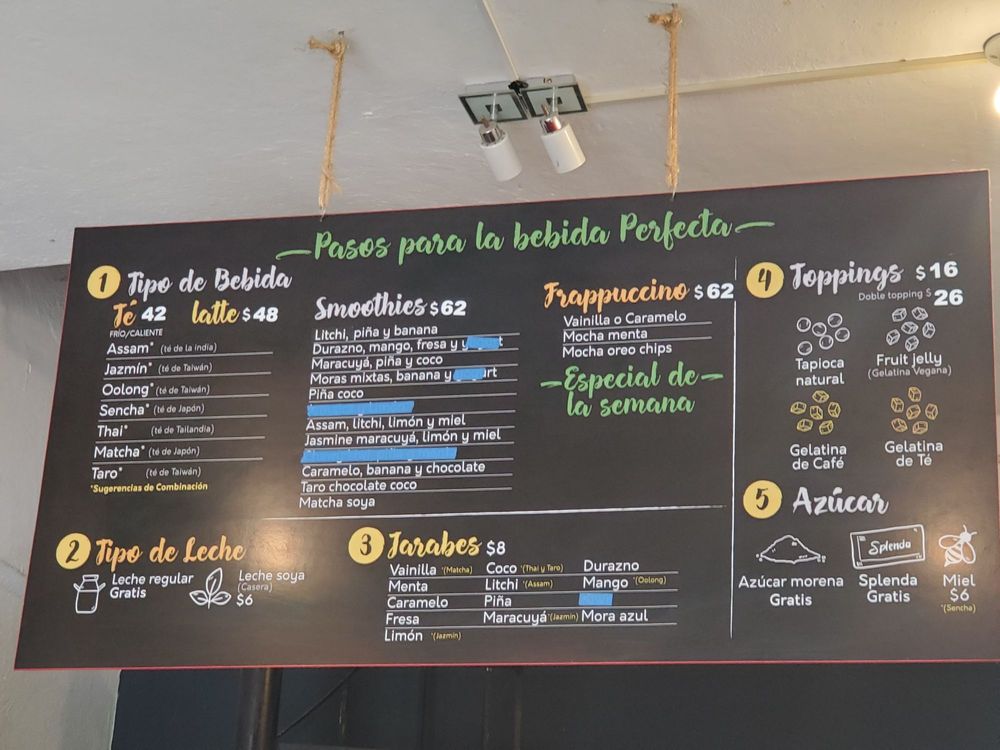 Pasos para la bebida Perfecta
1 Tipo de Bebida
Té 42 latte $48
FRÍO/CALIENTE
Assam* (té de la india)
Jazmín* (té de Taiwán)
Oolong* (té de Taiwán)
Sencha* (té de Japón)
Thai* (té de Tailandia)
Matcha* (té de Japón)
Taro* (té de Taiwán)
*Sugerencias de Combinación
Smoothies $62
Litchi, piña y banana
Durazno, mango, fresa y
Maracuyá, piña y coco
Moras mixtas, banana y
Piña coco
Assam, litchi, limón y miel
Jasmine maracuyá, limón y miel
Caramelo, banana y chocolate
Taro chocolate coco
Matcha soya
Frappuccino $62
Vainilla o Caramelo
Mocha menta
Mocha oreo chips
Especial de
la semana
2 Tipo de Leche
Leche regular
Gratis
Leche soya
(Casera)
$6
3 Jarabes $8
Vainilla *(Matcha) Coco *(Thai y Taro) Durazno
Menta Litchi *(Assam) Mango *(Oolong)
Caramelo Piña
Fresa Maracuyá *(Jazmín) Mora azul
Limón *(Jazmín)
4 Toppings $16
Doble topping $ 26
Tapioca
natural
Fruit jelly
(Gelatina Vegana)
Gelatina
de Café
Gelatina
de Té
5 Azúcar
Azúcar morena
Gratis
Splenda
Splenda
Gratis
Miel
$6
*(Sencha)